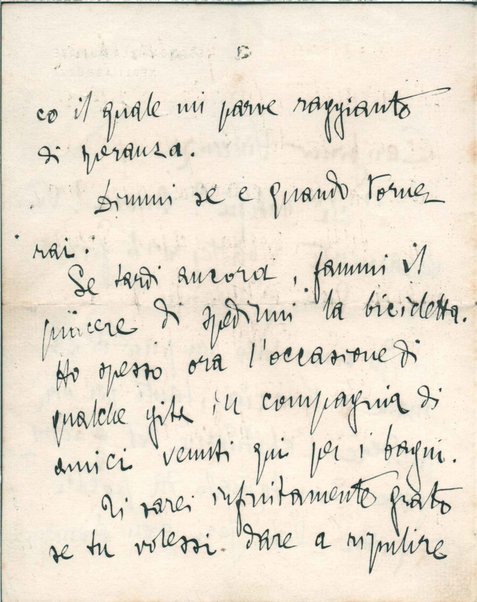 co il quale mi parve raggiante
di speranza.
Dimmi se e quando torne
rai.
Se tardi ancora, fammi il
piacere di spedirmi la bicicletta.
Ho spesso ora l'occasione di
qualche gita in compagnia di
amici venuti qui per i bagni.
Ti sarei infinitamente grato
se tu volessi dare a ripulire